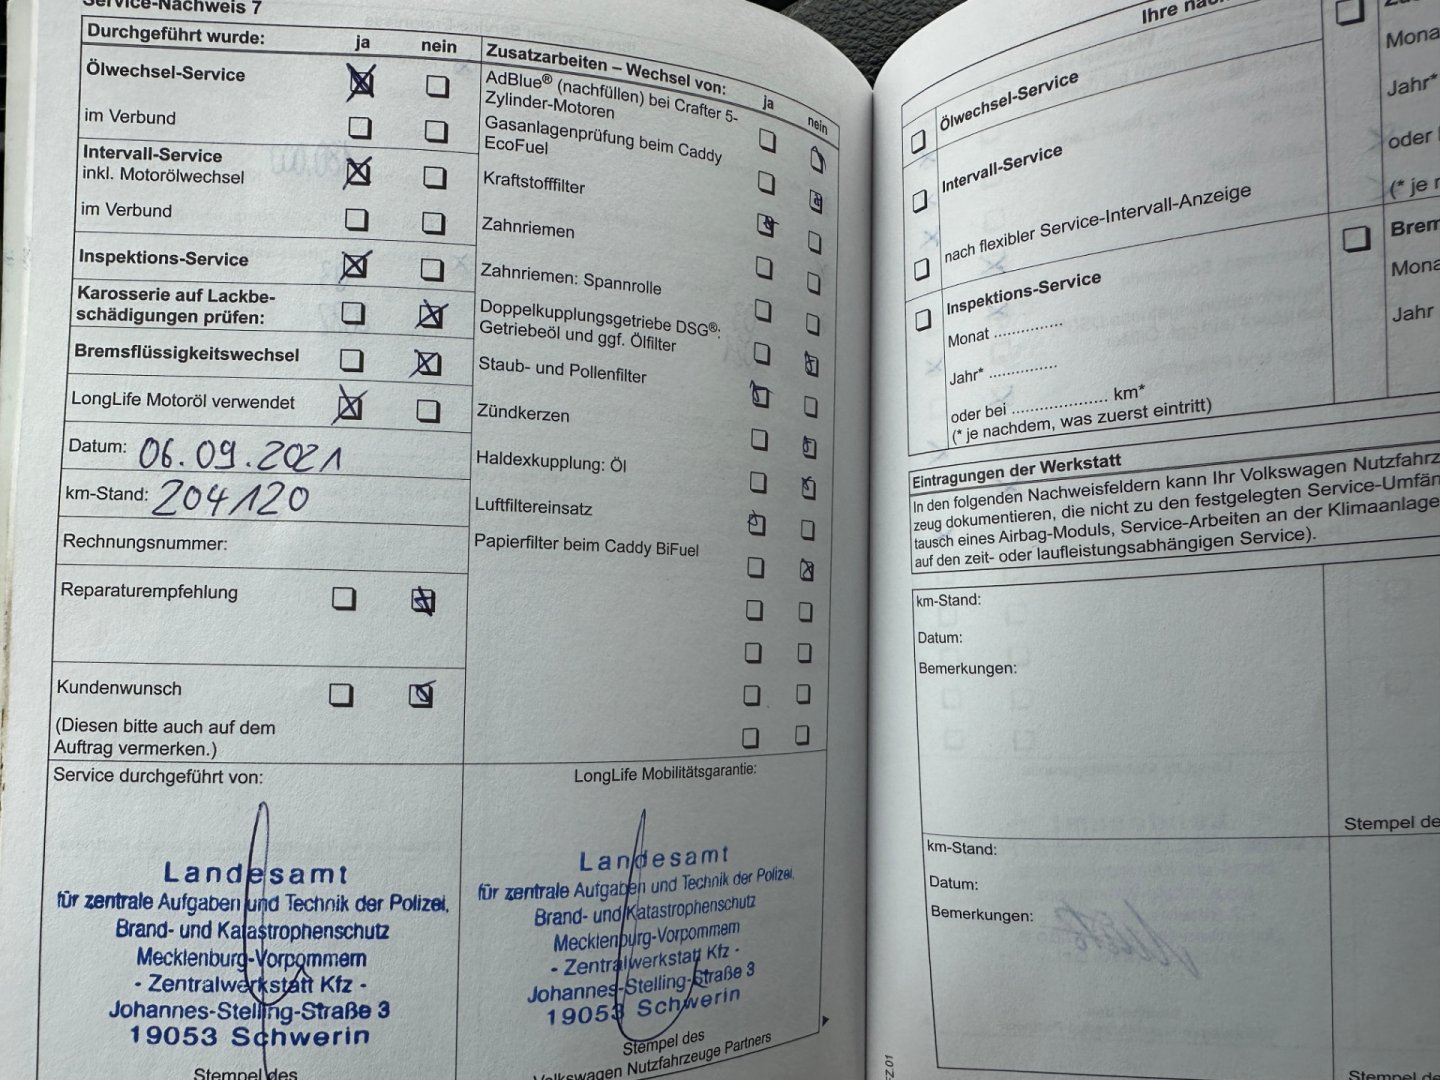 Service-Nachweis 7
Durchgeführt wurde: ja nein
Ölwechsel-Service
im Verbund
Intervall-Service
inkl. Motorölwechsel
im Verbund
Inspektions-Service
Karosserie auf Lackbe-
schädigungen prüfen:
Bremsflüssigkeitswechsel
LongLife Motoröl verwendet
Datum: 06.09.2021
km-Stand: 204120
Rechnungsnummer:
Reparaturempfehlung
Kundenwunsch
(Diesen bitte auch auf dem
Auftrag vermerken.)
Service durchgeführt von:
Landesamt
für zentrale Aufgaben und Technik der Polizei,
Brand- und Katastrophenschutz
Mecklenburg-Vorpommern
- Zentralwerkstatt Kfz -
Johannes-Stelling-Straße 3
19053 Schwerin
Stempel des
Zusatzarbeiten – Wechsel von: ja nein
AdBlue® (nachfüllen) bei Crafter 5-
Zylinder-Motoren
Gasanlagenprüfung beim Caddy
EcoFuel
Kraftstofffilter
Zahnriemen
Zahnriemen: Spannrolle
Doppelkupplungsgetriebe DSG®:
Getriebeöl und ggf. Ölfilter
Staub- und Pollenfilter
Zündkerzen
Haldexkupplung: Öl
Luftfiltereinsatz
Papierfilter beim Caddy BiFuel
LongLife Mobilitätsgarantie:
Landesamt
für zentrale Aufgaben und Technik der Polizei,
Brand- und Katastrophenschutz
Mecklenburg-Vorpommern
- Zentralwerkstatt Kfz -
Johannes-Stelling-Straße 3
19053 Schwerin
Stempel des
Volkswagen Nutzfahrzeuge Partners
Ihre
Ölwechsel-Service
Intervall-Service
nach flexibler Service-Intervall-Anzeige
Inspektions-Service
Monat ...............
Jahr* ...............
oder bei ..................... km*
(* je nachdem, was zuerst eintritt)
Mona
Jahr*
oder
(* je
Brem
Mona
Jahr
Eintragungen der Werkstatt
In den folgenden Nachweisfeldern kann Ihr Volkswagen Nutzfahrz
zeug dokumentieren, die nicht zu den festgelegten Service-Umfän
tausch eines Airbag-Moduls, Service-Arbeiten an der Klimaanlage
auf den zeit- oder laufleistungsabhängigen Service).
km-Stand:
Datum:
Bemerkungen:
Stempel de
km-Stand:
Datum:
Bemerkungen:
Stempel des